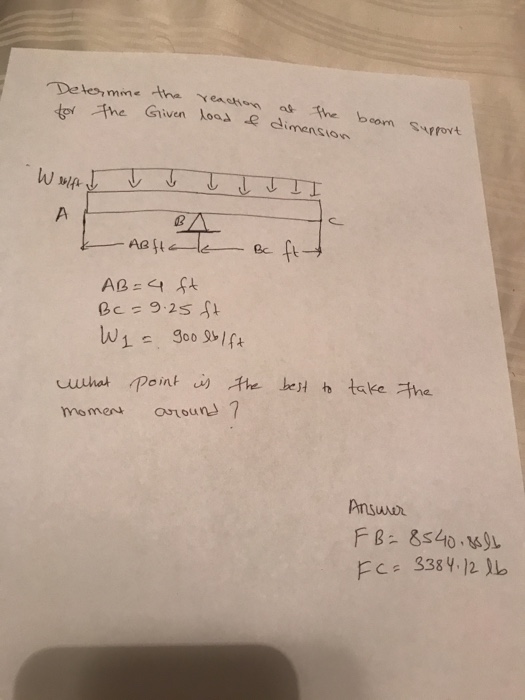 Determine the reaction at the beam support
for The Given load & dimension
W lb/ft
A
B
C
AB ft
BC ft
AB = 4 ft
BC = 9.25 ft
W1 = 900 lb/ft
what point is the best to take the
moment around?
Answer
FB = 8540.88 lb
FC = 3384.12 lb